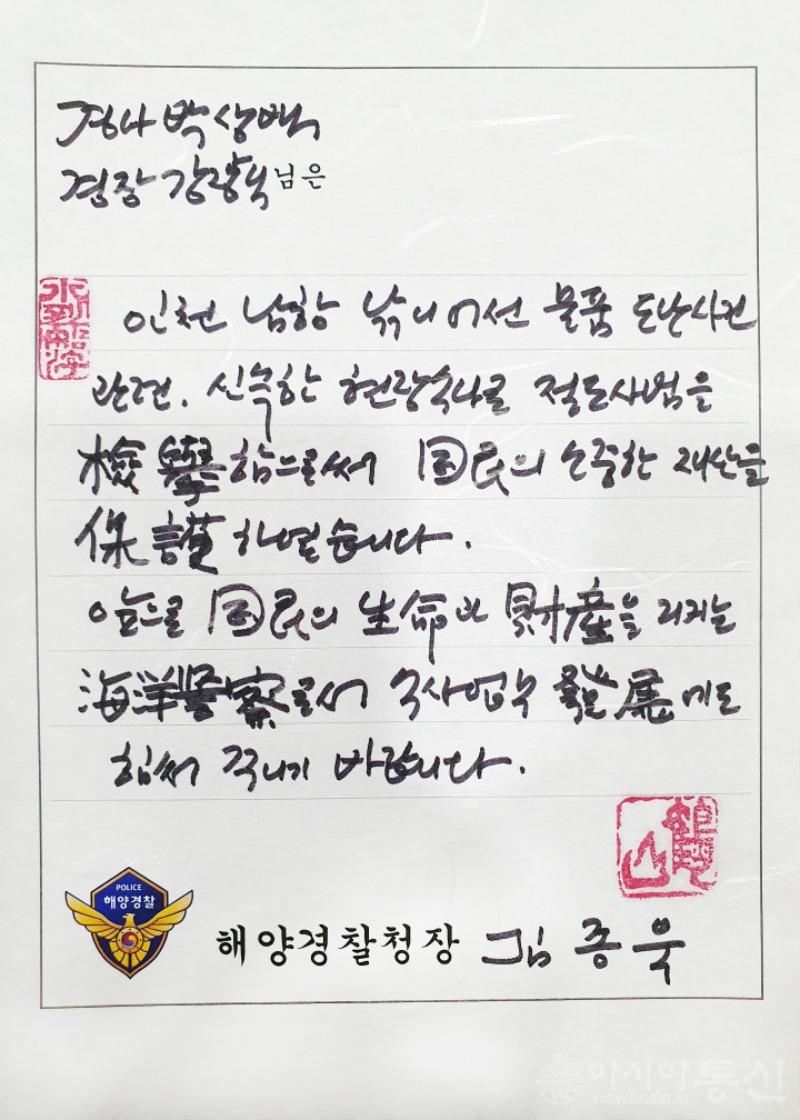 경사 박상백
경장 강광식님은
인천 남항 낚시어선 물품 도난사건
관련, 신속한 현장수사로 절도사범을
檢擧함으로써 国民의 소중한 재산을
保護하였습니다.
앞으로 国民의 生命과 財産을 지키는
海洋警察로서 수사업무 發展에도
힘써 주시기 바랍니다.
POLICE
해양경찰
해양경찰청장 김종욱
아시아통신
newsasia.kr